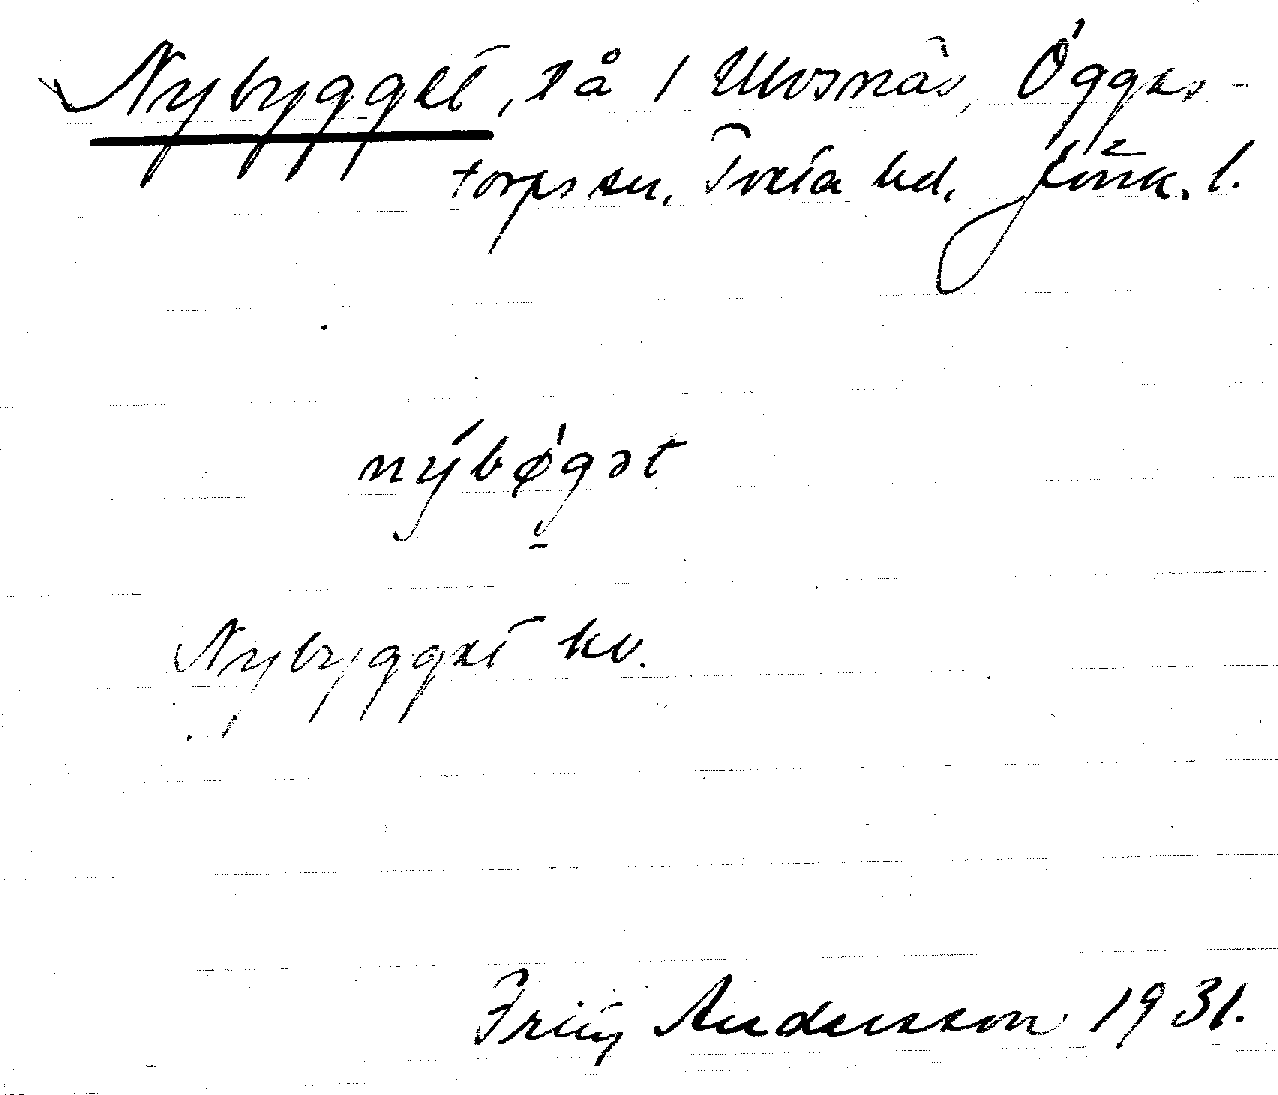 Nybygget, lå 1 Ulvsnäs, Öggks-
torps sn, Tveta hd, Jönk. l.
nýbǿgət
Nybygget kv.
Fritz Andersson 1931.